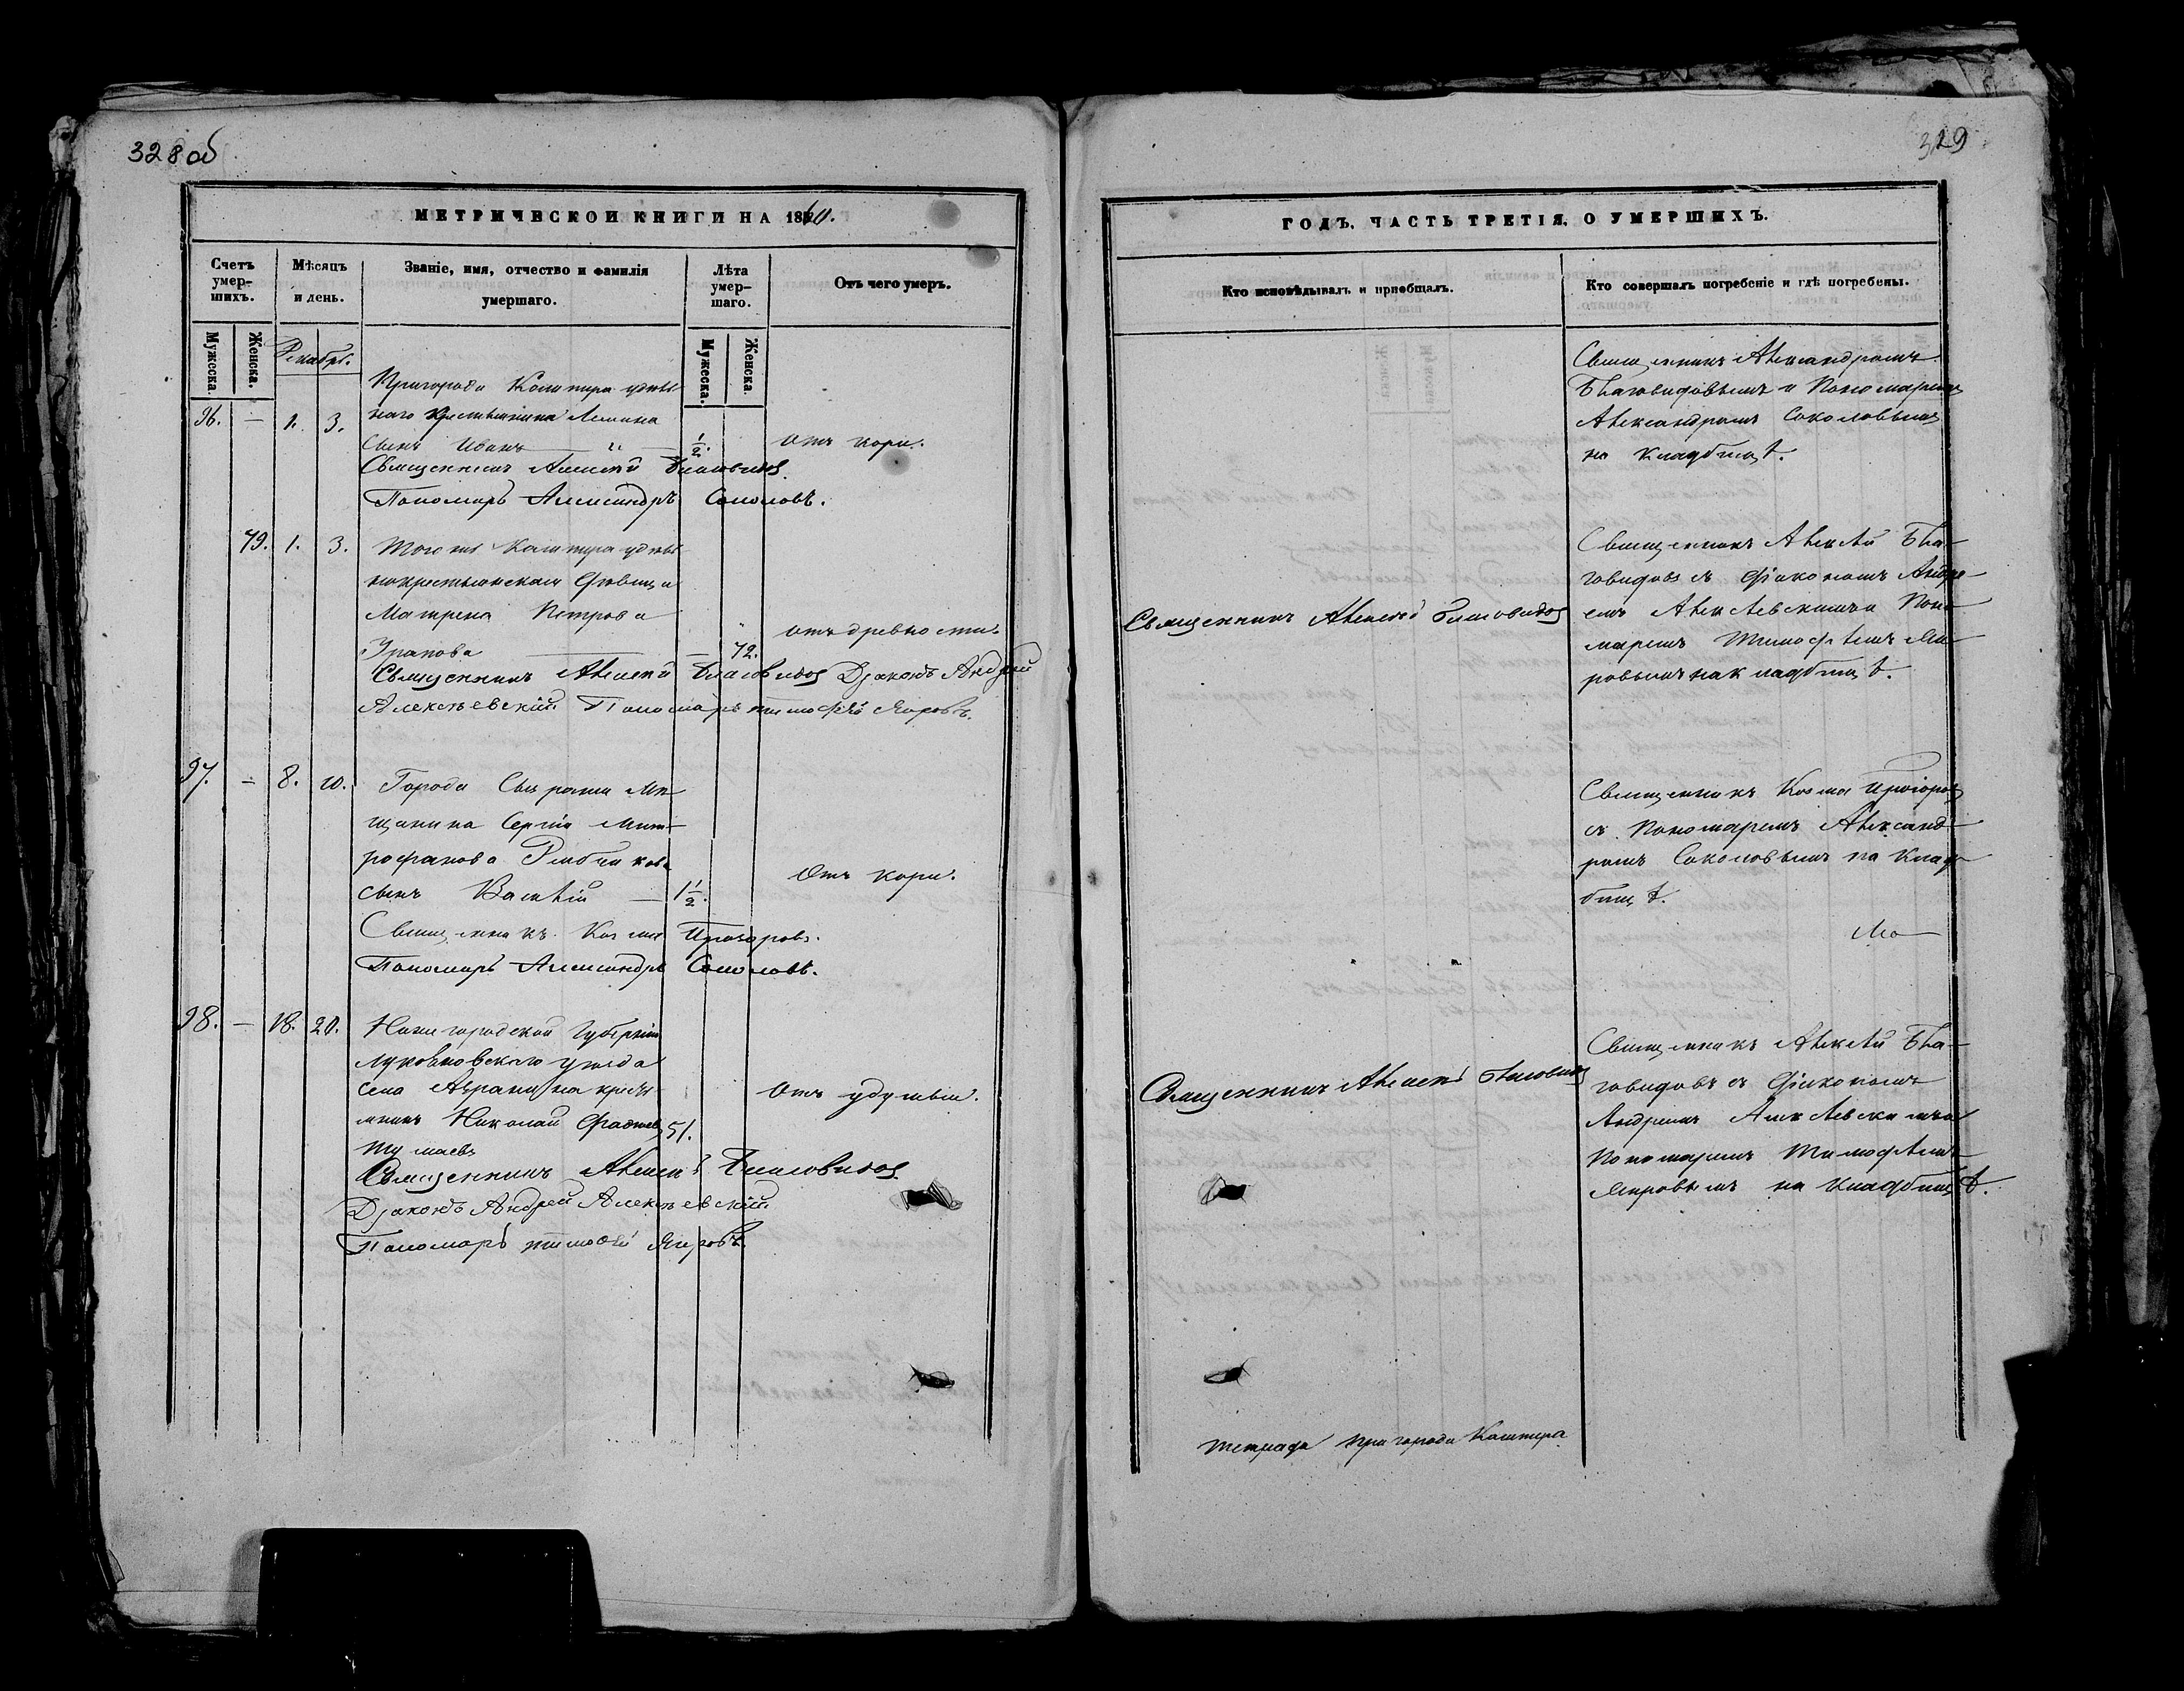 328 об
МЕТРИЧЕСКОЙ КНИГИ НА 1860.
Счетъ умер-шихъ.
Мужеска.
Женска.
Мѣсяцъ и день.
Званіе, имя, отчество и фамилія умершаго.
Лѣта умер-шаго.
Мужеска.
Женска
Отъ чего умеръ.
Декабрь.
96. — 1. 3.
Пригорода Кашпира удѣль
наго крестьянина
сынъ Иванъ — " — 1/2. отъ кори.
Священникъ Алексѣй Благовидов
Пономарь Александръ Соколовъ.
79. 1. 3. Того же Кашпира удѣль
нокрестьянская дѣвица
Матрена Петрова
— 72. отъ древности.
Священникъ Алексѣй Благовидов Дьяконъ Андрей
Алексѣевскій. Пономарь Тимофей Яировъ.
97. — 8. 10. Города Сызрани мѣ
щанина Сергія Мит-
рофанова Рябчикова
сынъ Василій — 1 1/2. Отъ кори.
Священникъ Козма Прозоровъ.
Пономарь Александръ Соколовъ.
98. — 18. 20. Нижегородской Губерніи
Лукояновскаго уѣзда
села
Николай Фадѣев 51. Отъ удушья.
Священникъ Алексѣй Благовидов
Дьяконъ Андрей Алексѣевскій.
Пономарь Тимофей Яировъ.
329
ГОДЪ, ЧАСТЬ ТРЕТІЯ, О УМЕРШИХЪ.
Кто исповѣдывалъ и пріобщалъ.
Кто совершалъ погребеніе и гдѣ погребены.
Священникъ Александромъ
Благовидовымъ и Пономаремъ
Александромъ Соколовымъ
на кладбищѣ.
Священникъ Алексѣй Благовидов
Священникъ Алексѣй Бла-
говидовъ съ Діакономъ Андре
емъ Алексѣевскимъ и Поно
маремъ Тимофѣемъ Яи
ровымъ на кладбищѣ.
Священникъ Козма Прозоров
съ Пономаремъ Александ-
ромъ Соколовымъ на клад-
бищѣ.
Священникъ Алексѣй Благовидов
Священникъ Алексѣй Бла-
говидовъ съ Діакономъ
Андреемъ Алексѣевскимъ и
Пономаремъ Тимофѣемъ
Яировымъ на кладбищѣ.
тетрадь пригорода Кашпира